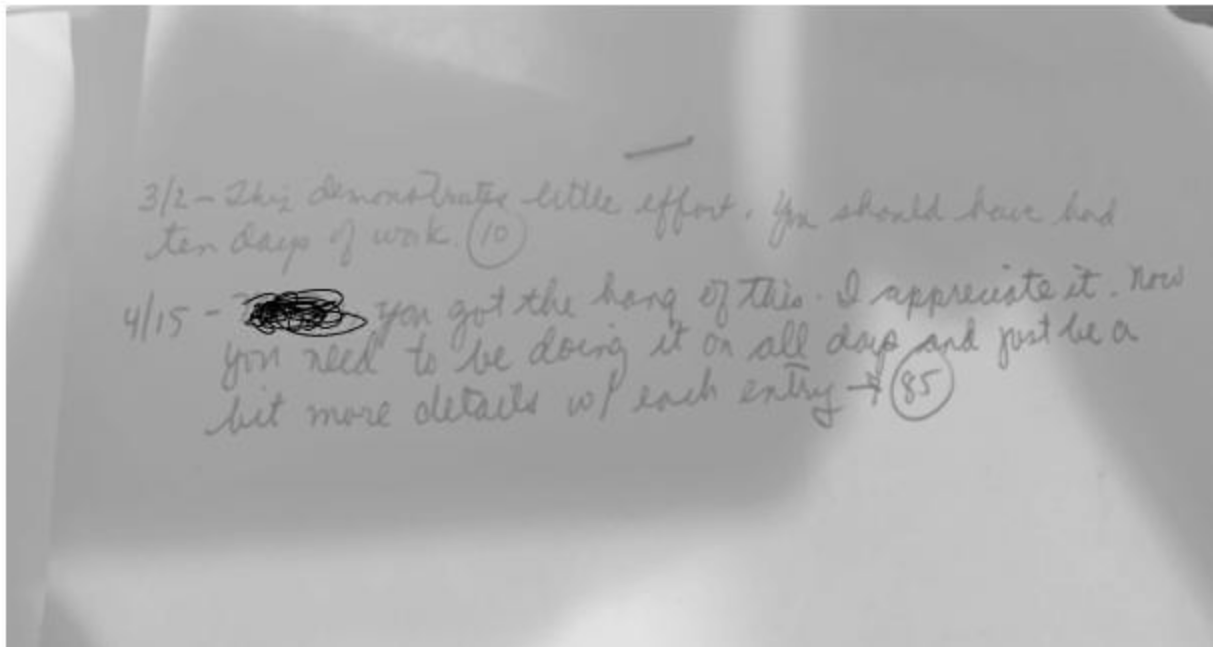 3/2 - This demonstrates little effort. You should have had
ten days of work. (10)
4/15 - you got the hang of this. I appreciate it. Now
you need to be doing it on all days and just be a
bit more details w/ each entry → (85)